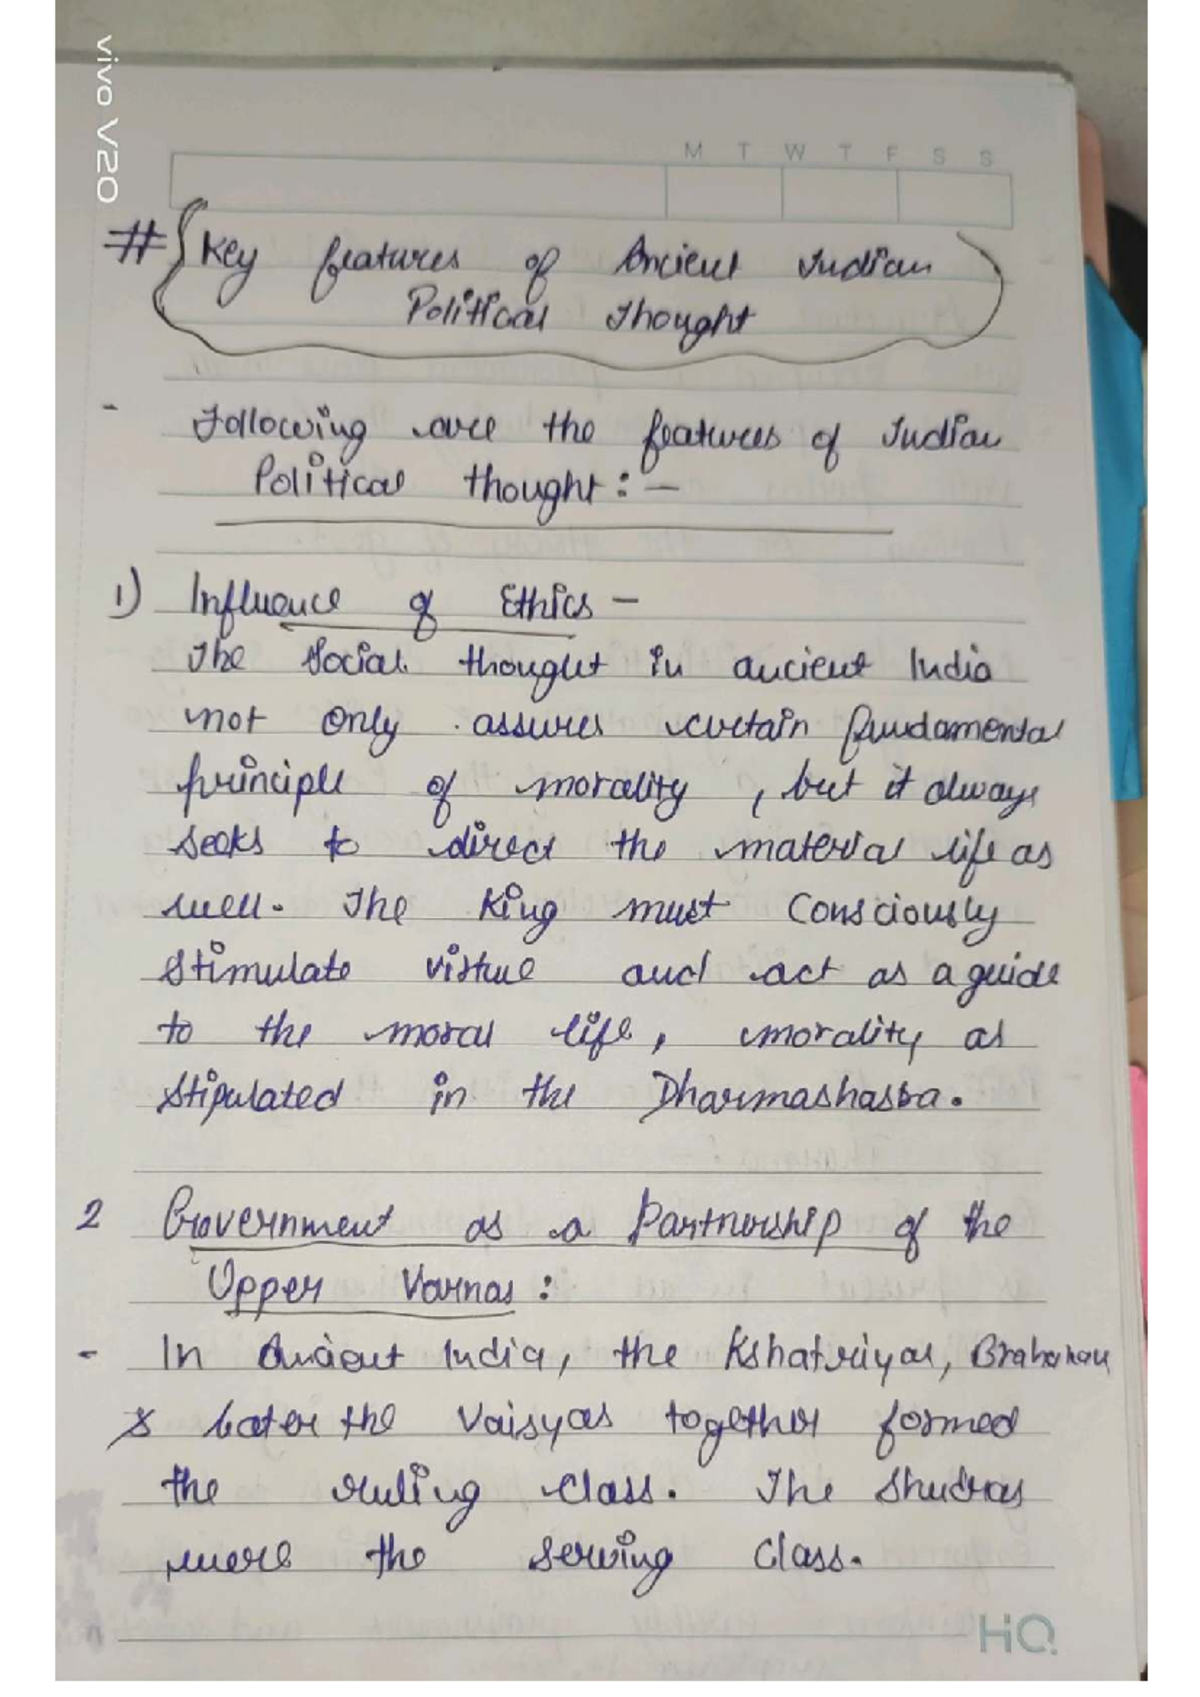 vivo V20
M T W T F S S
# Key features of Ancient Indian
Political Thought
- Following are the features of Indian
Political thought : -
1) Influence of Ethics -
The Social thought in ancient India
not only assures certain fundamental
principle of morality, but it always
seeks to direct the material life as
well. The King must Consciously
Stimulate virtue and act as a guide
to the moral life, morality as
stipulated in the Dharmashastra.
2 Government as a Partnership of the
Upper Varnas :
- In Ancient India, the Kshatriyas,
& Later the Vaisyas together formed
the ruling Class. The Shudras
were the serving Class.
HQ